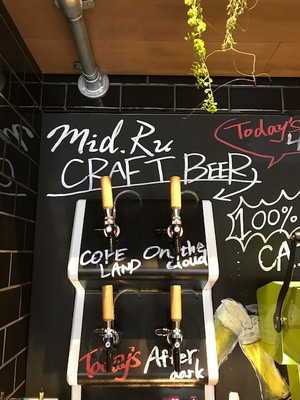 Mid.Ru
CRAFT BEER
Today's
100%
CA
COPE
LAND
On the
cloud
Today's
After
dark